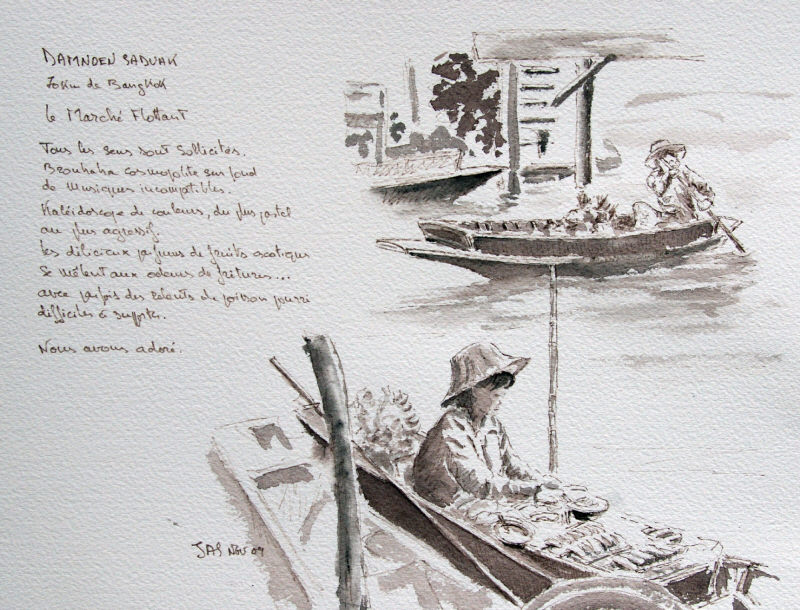 DAMNOEN SADUAK
70km de Bangkok
Le Marché Flottant
Tous les sens sont sollicités.
Brouhaha cosmopolite sur fond
de musiques incompatibles.
Kaléidoscope de couleurs, du plus pastel
au plus agressif.
Les délicieux parfums de fruits exotiques
se mêlent aux odeurs de fritures...
avec parfois des relents de poisson pourri
difficiles à supporter.
Nous avons adoré.
JAS NOV 09